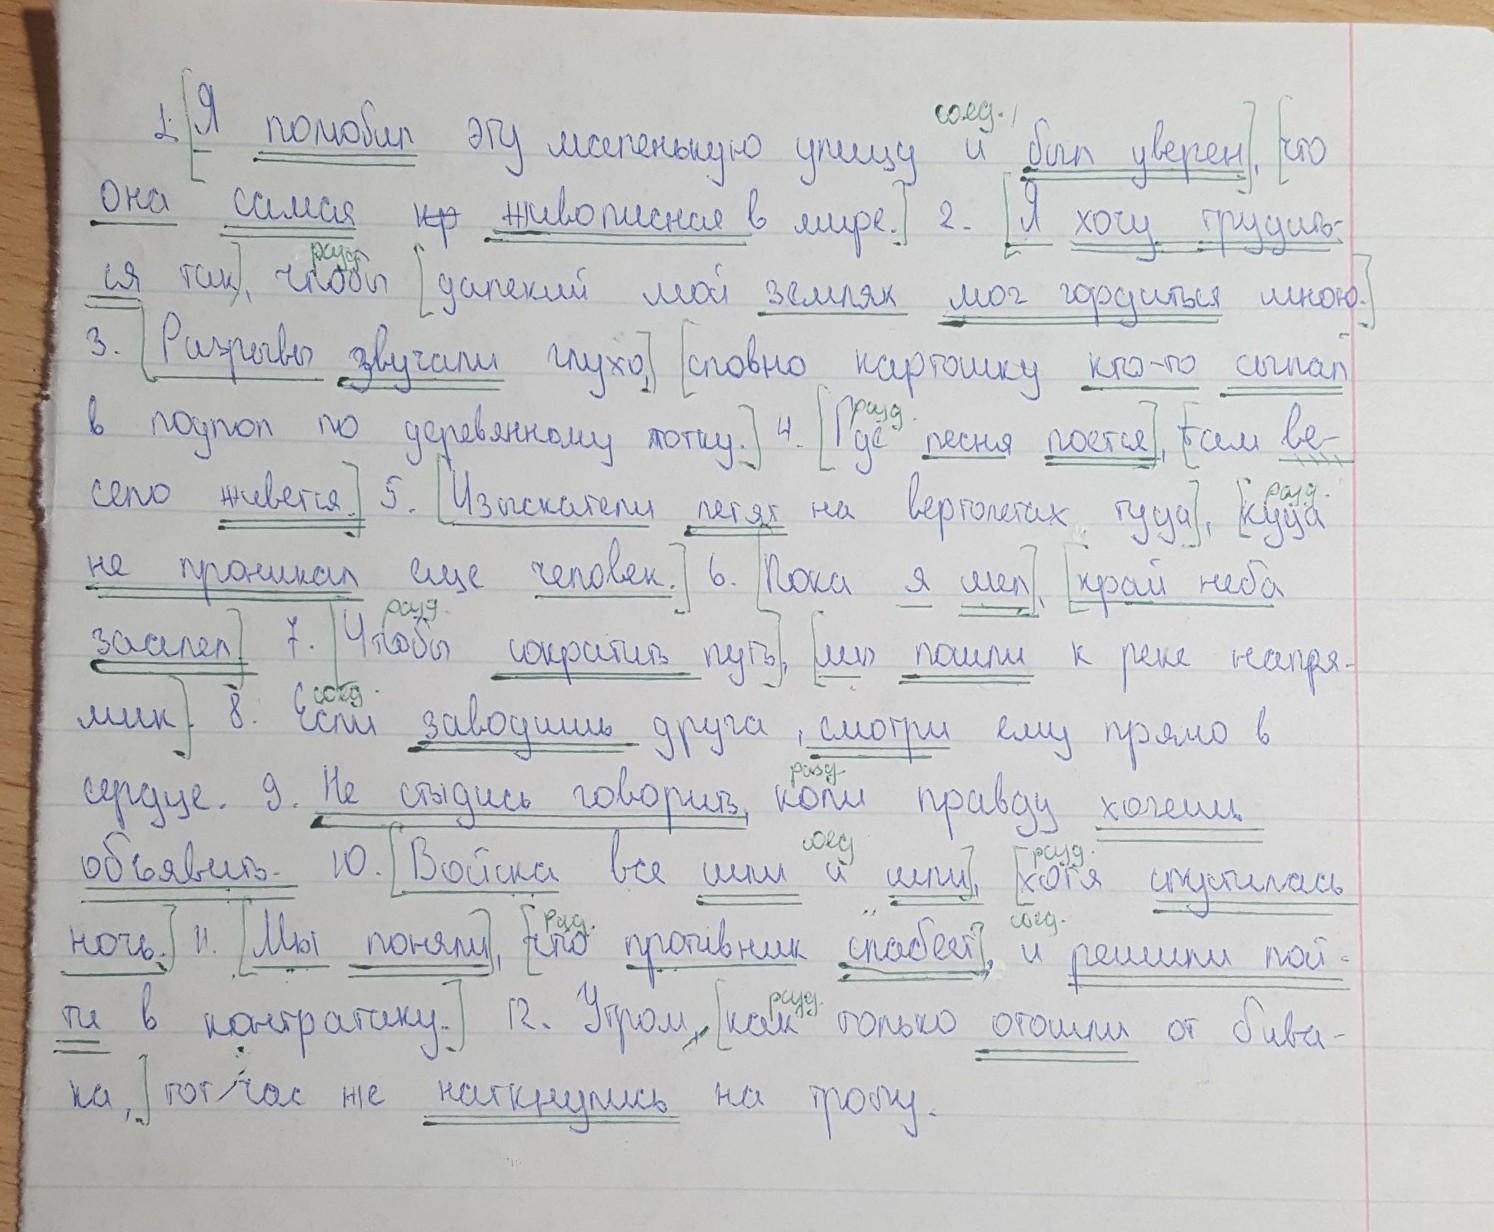 соед.
1. [Я полюбил эту маленькую улицу и был уверен], [что
она самая кр живописная в мире.] 2. [Я хочу трудить-
разд.
ся так], чтобы [далекий мой земляк мог гордиться мною.]
3. [Разрывы звучали глухо,] [словно картошку кто-то сыпал
разд.
в подпол по деревянному лотку.] 4. [Где песня поется], [там ве-
разд.
село живется.] 5. [Изыскатели летят на вертолетах туда], [куда
не проникал еще человек.] 6. [Пока я шел], [край неба
разд.
заалел] 7. [Чтобы сократить путь], [мы пошли к реке напря-
соед.
мик]. 8. Если заводишь друга, смотри ему прямо в
разд
сердце. 9. Не стыдись говорить, коли правду хочешь
соед разд.
объявить. 10. [Войска все шли и шли], [хотя спустилась
разд. соед.
ночь.] 11. [Мы поняли], [что противник слабеет], и решили пой-
разд.
ти в контратаку.] 12. Утром, [как только отошли от бива-
ка,] тотчас же наткнулись на тропу.